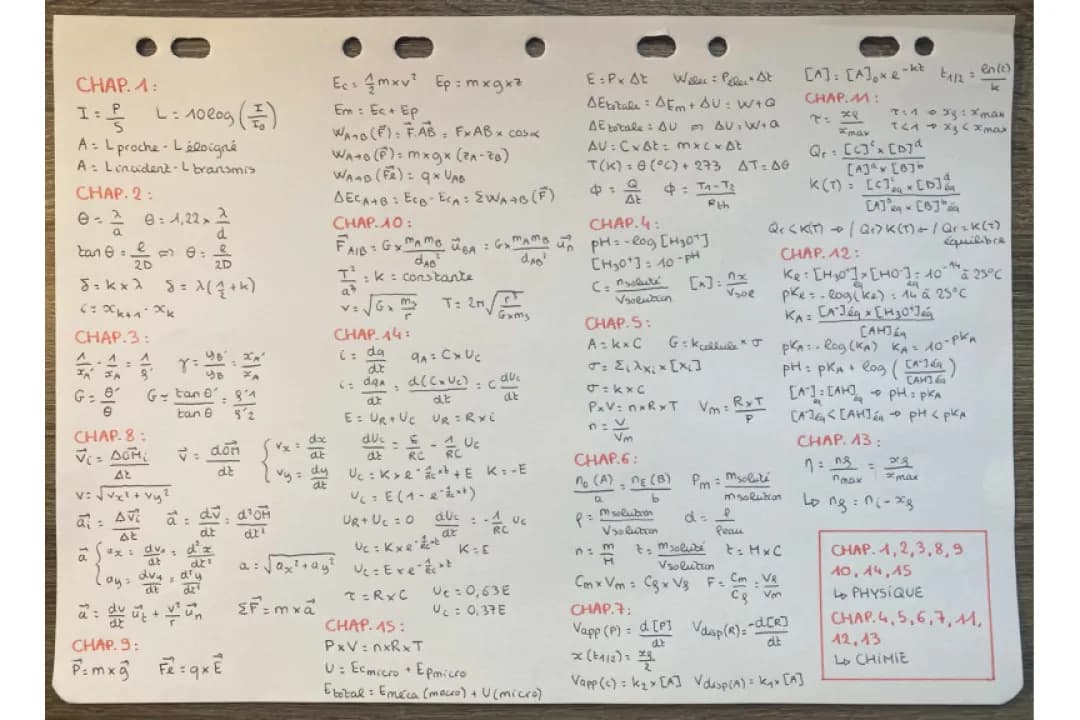 CHAP. 1 :
I = P/S   L = 10log(I/I₀)
A = Lproche - Léloigné
A = Lincident - Ltransmis
CHAP. 2 :
θ = λ/a   θ = 1,22 × λ/d
tanθ = ℓ/2D ⇔ θ = ℓ/2D
δ = k × λ   δ = λ(1/2 + k)
i = xₖ₊₁ - xₖ
CHAP. 3 :
1/xA' - 1/xA = 1/f'   γ = yB'/yB = xA'/xA
G = θ'/θ   G = tanθ'/tanθ = f'1/f'2
CHAP. 8 :
V⃗i = ΔOM⃗i/Δt   V⃗ = dOM⃗/dt   { vx = dx/dt
vy = dy/dt
v = √(vx² + vy²)
a⃗i = ΔV⃗i/Δt   a⃗ = dv⃗/dt = d²OM⃗/dt²
a⃗ { ax = dvx/dt = d²x/dt²
ay = dvy/dt = d²y/dt²   a = √(ax² + ay²)
a⃗ = dv/dt u⃗t + v²/r u⃗n   ΣF⃗ = m × a⃗
CHAP. 9 :
P⃗ = m × g⃗   F⃗e = q × E⃗
Ec = 1/2 m × v²   Ep = m × g × z
Em = Ec + Ep
WA→B(F⃗) = F⃗.AB⃗ = F × AB × cosα
WA→B(P⃗) = m × g × (zA - zB)
WA→B(F⃗e) = q × UAB
ΔEcA→B = EcB - EcA = ΣWA→B(F⃗)
CHAP. 10 :
F⃗A/B = G × mAmB/dAB² u⃗BA = G × mAmB/dAB² u⃗n
T²/a³ = k = constante
v = √(G × ms/r)   T = 2π√(r³/G×ms)
CHAP. 14 :
i = dq/dt   qA = C × Uc
i = dqA/dt = d(C × Uc)/dt = C dUc/dt
E = UR + Uc   UR = R × i
dUc/dt = E/RC - 1/RC Uc
Uc = K × e^(-1/RC × t) + E   K = -E
Uc = E(1 - e^(-1/RC × t))
UR + Uc = 0   dUc/dt = -1/RC Uc
Uc = K × e^(-1/RC × t)   K = E
Uc = E × e^(-1/RC × t)
τ = R × C   Uc = 0,63E
Uc = 0,37E
CHAP. 15 :
P × V = n × R × T
U = Ecmicro + Epmicro
Etotal = Eméca (macro) + U (micro)
E = P × Δt   Wélec = Pélec × Δt
ΔEtotale = ΔEm + ΔU = W + Q
ΔEtotale = ΔU ⇔ ΔU = W + Q
ΔU = C × Δt = m × c × Δt
T(K) = θ(°C) + 273   ΔT = Δθ
Φ = Q/Δt   Φ = T1 - T2/Rth
CHAP. 4 :
pH = -log[H₃O⁺]
[H₃O⁺] = 10^-pH
C = nsoluté/Vsolution   [x] = nx/Vsol
CHAP. 5 :
A = k × C   G = kcellule × σ
σ = Σi λxi × [Xi]
σ = k × C
P × V = n × R × T   Vm = R × T/P
n = V/Vm
CHAP. 6 :
n₀(A)/a = nE(B)/b   Pm = msoluté/msolution
ρ = msolution/Vsolution   d = ρ/ρeau
n = m/M   t = msoluté/Vsolution   t = M × C
Cm × Vm = Cf × Vf   F = Cm/Cf = Vf/Vm
CHAP. 7 :
Vapp(P) = d[P]/dt   Vdisp(R) = -d[R]/dt
x(t1/2) = xf/2
Vapp(c) = k₂ × [A]   Vdisp(A) = k₁ × [A]
[A] = [A]₀ × e^-kt   t1/2 = ln(2)/k
CHAP. 11 :
τ = xf/xmax   τ = 1 ⇒ xf = xmax
τ < 1 ⇒ xf < xmax
Qr = [C]^c × [D]^d/[A]^a × [B]^b
K(T) = [C]^c éq × [D]^d éq/[A]^a éq × [B]^b éq
Qr < K(T) → / Qr > K(T) ← / Qr = K(T)
équilibre
CHAP. 12 :
Ke = [H₃O⁺]éq × [HO⁻]éq = 10⁻¹⁴ à 25°C
pKe = -log(Ke) = 14 à 25°C
KA = [A⁻]éq × [H₃O⁺]éq/[AH]éq
pKA = -log(KA)   KA = 10^-pKA
pH = pKA + log([A⁻]éq/[AH]éq)
[A⁻]éq = [AH]éq ⇒ pH = pKA
[A⁻]éq < [AH]éq ⇒ pH < pKA
CHAP. 13 :
η = nf/nmax = xf/xmax
↳ nf = ni - xf
CHAP. 1, 2, 3, 8, 9
10, 14, 15
↳ PHYSIQUE
CHAP. 4, 5, 6, 7, 11,
12, 13
↳ CHIMIE